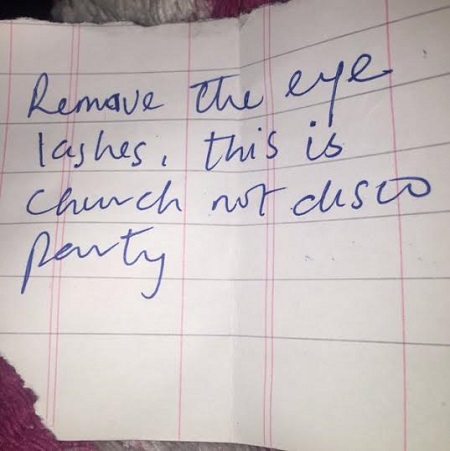 Remove the eye
lashes, this is
church not disco
party